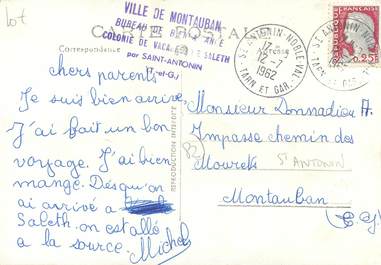 lot
VILLE DE MONTAUBAN
BUREAU DE
COLONIE DE VACANCES DE SALETH
par SAINT-ANTONIN
(T.-et-G.)
CARTE POSTALE
Correspondance
Adresse
ST ANTONIN-NOBLE-VAL
17 H
12-7
1962
TARN ET GAR.
0,25F
chers parents.
Je suis bien arrivé.
J'ai fait un bon
voyage. J'ai bien
mangé. Dès qu'on
ai arrivé a
Saleth on est allé
a la source. Michel
REPRODUCTION INTERDITE
Monsieur Donnadieu A.
Impasse chemin des
Mourets
82
St ANTONIN
Montauban
(T.G)